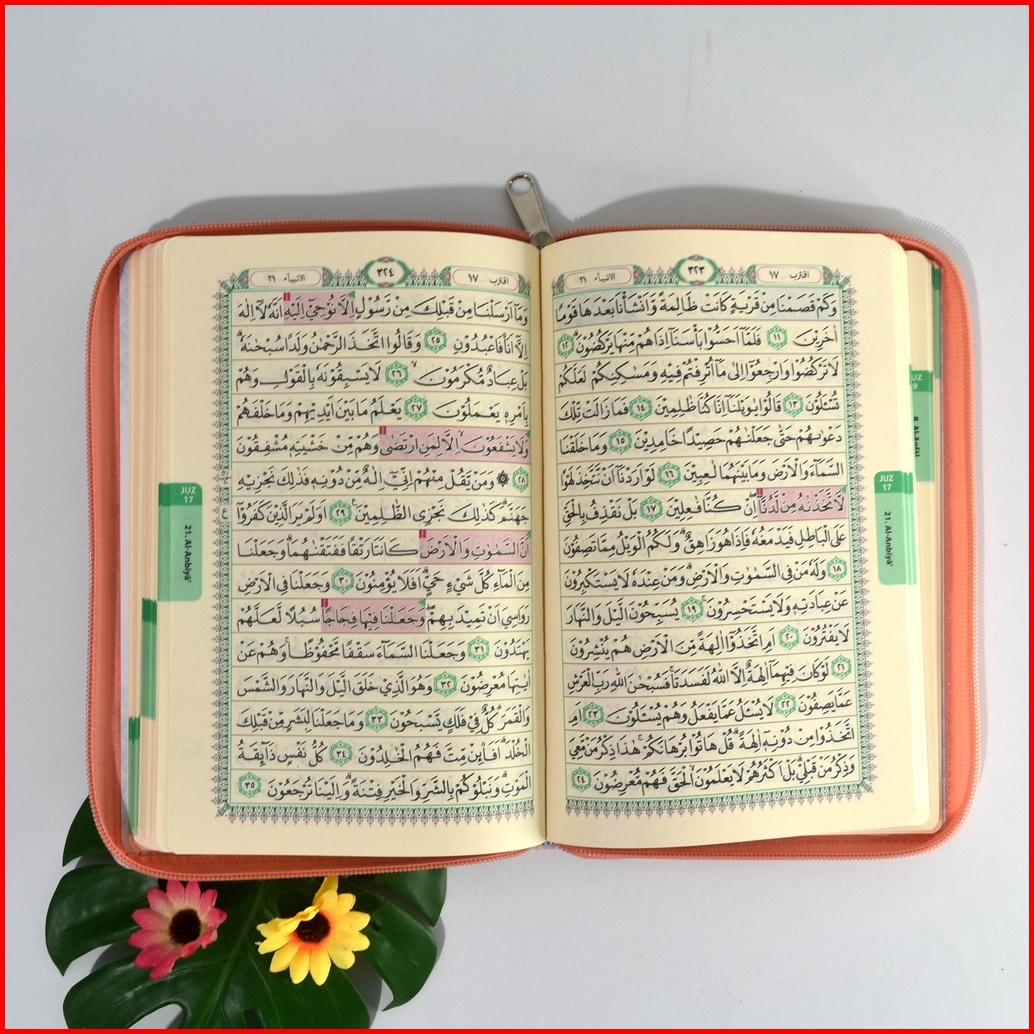 اقترب ١٧
٣٢٣
الانبياء ٢١
وَكَمْ قَصَمْنَا مِنْ قَرْيَةٍ كَانَتْ ظَالِمَةً وَّاَنْشَأْنَا بَعْدَهَا قَوْمًا
اٰخَرِيْنَ ١١ فَلَمَّآ اَحَسُّوْا بَأْسَنَآ اِذَا هُمْ مِّنْهَا يَرْكُضُوْنَ ١٢
لَا تَرْكُضُوْا وَارْجِعُوْٓا اِلٰى مَآ اُتْرِفْتُمْ فِيْهِ وَمَسٰكِنِكُمْ لَعَلَّكُمْ
تُسْـَٔلُوْنَ ١٣ قَالُوْا يٰوَيْلَنَآ اِنَّا كُنَّا ظٰلِمِيْنَ ١٤ فَمَا زَالَتْ تِّلْكَ
دَعْوٰىهُمْ حَتّٰى جَعَلْنٰهُمْ حَصِيْدًا خَامِدِيْنَ ١٥ وَمَا خَلَقْنَا
السَّمَاۤءَ وَالْاَرْضَ وَمَا بَيْنَهُمَا لٰعِبِيْنَ ١٦ لَوْ اَرَدْنَآ اَنْ نَّتَّخِذَ لَهْوًا
لَّاتَّخَذْنٰهُ مِنْ لَّدُنَّآ اِنْ كُنَّا فٰعِلِيْنَ ١٧ بَلْ نَقْذِفُ بِالْحَقِّ
عَلَى الْبَاطِلِ فَيَدْمَغُهٗ فَاِذَا هُوَ زَاهِقٌۗ وَلَكُمُ الْوَيْلُ مِمَّا تَصِفُوْنَ
١٨ وَلَهٗ مَنْ فِى السَّمٰوٰتِ وَالْاَرْضِۗ وَمَنْ عِنْدَهٗ لَا يَسْتَكْبِرُوْنَ
عَنْ عِبَادَتِهٖ وَلَا يَسْتَحْسِرُوْنَ ١٩ يُسَبِّحُوْنَ الَّيْلَ وَالنَّهَارَ
لَا يَفْتُرُوْنَ ٢٠ اَمِ اتَّخَذُوْٓا اٰلِهَةً مِّنَ الْاَرْضِ هُمْ يُنْشِرُوْنَ
٢١ لَوْ كَانَ فِيْهِمَآ اٰلِهَةٌ اِلَّا اللّٰهُ لَفَسَدَتَاۚ فَسُبْحٰنَ اللّٰهِ رَبِّ الْعَرْشِ
عَمَّا يَصِفُوْنَ ٢٢ لَا يُسْـَٔلُ عَمَّا يَفْعَلُ وَهُمْ يُسْـَٔلُوْنَ ٢٣ اَمِ
اتَّخَذُوْا مِنْ دُوْنِهٖٓ اٰلِهَةًۗ قُلْ هَاتُوْا بُرْهَانَكُمْۚ هٰذَا ذِكْرُ مَنْ مَّعِيَ
وَذِكْرُ مَنْ قَبْلِيْۗ بَلْ اَكْثَرُهُمْ لَا يَعْلَمُوْنَ الْحَقَّ فَهُمْ مُّعْرِضُوْنَ ٢٤
JUZ
17
21. Al-Anbiyā'
اقترب ١٧
٣٢٤
الانبياء ٢١
وَمَآ اَرْسَلْنَا مِنْ قَبْلِكَ مِنْ رَّسُوْلٍ اِلَّا نُوْحِيْٓ اِلَيْهِ اَنَّهٗ لَآ اِلٰهَ
اِلَّآ اَنَا۠ فَاعْبُدُوْنِ ٢٥ وَقَالُوا اتَّخَذَ الرَّحْمٰنُ وَلَدًا سُبْحٰنَهٗۗ
بَلْ عِبَادٌ مُّكْرَمُوْنَۙ ٢٦ لَا يَسْبِقُوْنَهٗ بِالْقَوْلِ وَهُمْ
بِاَمْرِهٖ يَعْمَلُوْنَ ٢٧ يَعْلَمُ مَا بَيْنَ اَيْدِيْهِمْ وَمَا خَلْفَهُمْ
وَلَا يَشْفَعُوْنَۙ اِلَّا لِمَنِ ارْتَضٰى وَهُمْ مِّنْ خَشْيَتِهٖ مُشْفِقُوْنَ
٢٨ ۞ وَمَنْ يَّقُلْ مِنْهُمْ اِنِّيْٓ اِلٰهٌ مِّنْ دُوْنِهٖ فَذٰلِكَ نَجْزِيْهِ
جَهَنَّمَۗ كَذٰلِكَ نَجْزِى الظّٰلِمِيْنَ ٢٩ اَوَلَمْ يَرَ الَّذِيْنَ كَفَرُوْٓا
اَنَّ السَّمٰوٰتِ وَالْاَرْضَ كَانَتَا رَتْقًا فَفَتَقْنٰهُمَاۗ وَجَعَلْنَا
مِنَ الْمَاۤءِ كُلَّ شَيْءٍ حَيٍّۗ اَفَلَا يُؤْمِنُوْنَ ٣٠ وَجَعَلْنَا فِى الْاَرْضِ
رَوَاسِيَ اَنْ تَمِيْدَ بِهِمْۖ وَجَعَلْنَا فِيْهَا فِجَاجًا سُبُلًا لَّعَلَّهُمْ
يَهْتَدُوْنَ ٣١ وَجَعَلْنَا السَّمَاۤءَ سَقْفًا مَّحْفُوْظًاۚ وَهُمْ عَنْ
اٰيٰتِهَا مُعْرِضُوْنَ ٣٢ وَهُوَ الَّذِيْ خَلَقَ الَّيْلَ وَالنَّهَارَ وَالشَّمْسَ
وَالْقَمَرَۗ كُلٌّ فِيْ فَلَكٍ يَّسْبَحُوْنَ ٣٣ وَمَا جَعَلْنَا لِبَشَرٍ مِّنْ قَبْلِكَ
الْخُلْدَۗ اَفَا۟ىِٕنْ مِّتَّ فَهُمُ الْخٰلِدُوْنَ ٣٤ كُلُّ نَفْسٍ ذَاۤىِٕقَةُ
الْمَوْتِۗ وَنَبْلُوْكُمْ بِالشَّرِّ وَالْخَيْرِ فِتْنَةًۗ وَاِلَيْنَا تُرْجَعُوْنَ ٣٥
JUZ
17
21. Al-Anbiyā'